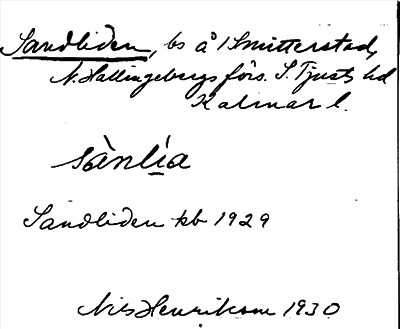 Sandliden, bs å 1 Smitterstad,
N. Hallingebergs förs. S. Tjusts hd
Kalmar l.
sànlí̠a
Sandliden kb 1929
Nils Henrikson 1930